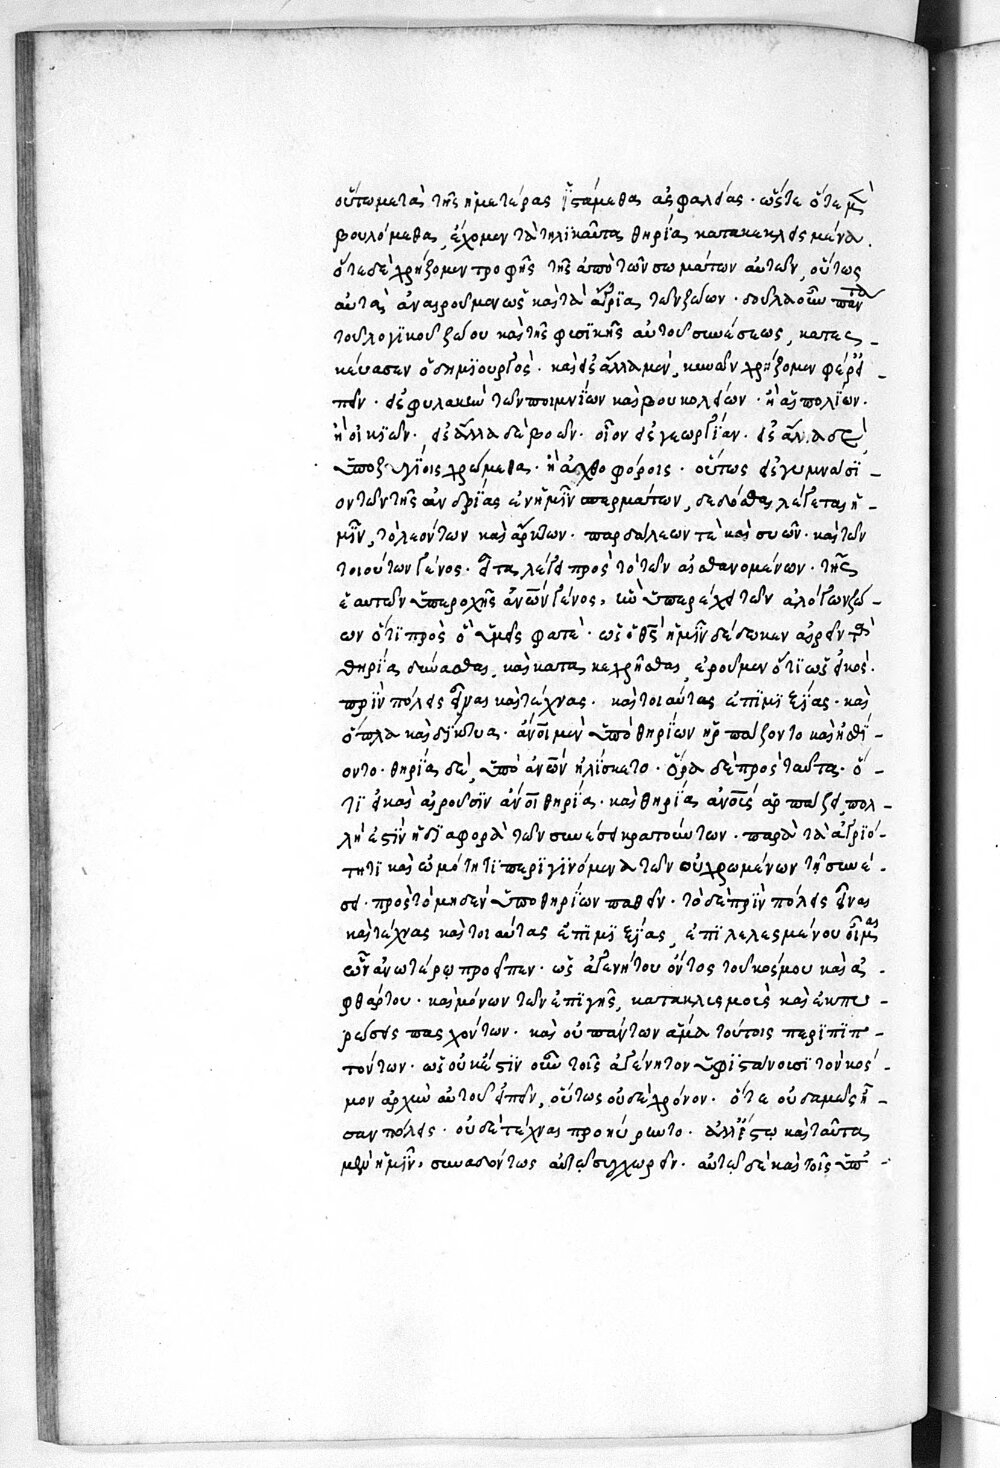 οὕτω μετὰ τῆς ἡμετέρας ἱστάμεθα ἀσφαλείας· ὥστε ὅτε μὲν
βουλόμεθα, ἔχομεν τὰ τηλικαῦτα θηρία κατακεκλεισμένα.
ὅτε δὲ χρήζομεν τροφῆς τῆς ἀπὸ τῶν σωμάτων αὐτῶν, οὕτως
αὐτὰ ἀναιροῦμεν ὡς καὶ τὰ μὴ ἄγρια τῶν ζώων· δοῦλα οὖν πάντα
τοῦ λογικοῦ ζώου καὶ τῆς φυσικῆς αὐτοῦ συνέσεως, κατεσ-
κεύασεν ὁ δημιουργός· καὶ εἰς ἄλλα μὲν, κυνῶν χρήζομεν φέρ' εἰ-
πεῖν· εἰς φυλακὴν τῶν ποιμνίων καὶ βουκολίων· ἢ αἰπολίων·
ἢ οἰκιῶν· εἰς ἄλλα δὲ βοῶν· οἷον εἰς γεωργίαν· εἰς ἄλλα δὲ
ὑποζυγίοις χρώμεθα· ἢ ἀχθοφόροις· οὕτως εἰς γυμνάσι-
ον τῶν τῆς ἀνδρίας ἐν ἡμῖν σπερμάτων, δεδόσθαι λέγεται ἡ-
μῖν, τὸ λεόντων καὶ ἄρκτων· παρδάλεων τὲ καὶ συῶν· καὶ τῶν
τοιούτων γένος· εἶτα λέγει πρὸς τὸ τῶν αἰσθανομένων· τῆς
ἑαυτῶν ὑπεροχῆς ἀνῶν γένος, ἣν ὑπερέχει τῶν ἀλόγων ζώ-
ων ὅτι πρὸς ὃ ὑμεῖς φατέ· ὡς ὁ θς ἡμῖν δέδωκεν αἱρεῖν τὰ
θηρία δύνασθαι, καὶ καταχρῆσθαι, ἐροῦμεν ὅτι ὡς εἰκὸς·
πρὶν πόλεις εἶναι καὶ τέχνας· καὶ τοιαύτας ἐπιμιξίας· καὶ
ὅπλα καὶ δίκτυα· ἄνοι μὲν ὑπὸ θηρίων ἡρπάζοντο καὶ ἠσθί-
οντο· θηρία δὲ, ὑπὸ ἀνῶν ἡλίσκετο· ὅρα δὲ πρὸς ταῦτα· ὅ-
τι εἰ καὶ αἱροῦσιν ἄνοι θηρία· καὶ θηρία ἀνοὺς ἁρπάζει, πολ-
λή ἐστὶν ἡ διαφορὰ τῶν συνέσει κρατούντων· παρὰ τὰ ἀγριό-
τητι καὶ ὠμότητι περιγινόμενα τῶν οὐ χρωμένων τῇ συνέ-
σει· πρὸς τὸ μηδὲν ὑπὸ θηρίων παθεῖν· τὸ δὲ πρὶν πόλεις εἶναι
καὶ τέχνας καὶ τοιαύτας ἐπιμιξίας, ἐπιλελησμένου οἶμαι
ὧν ἀνωτέρω προεῖπεν· ὡς ἀγενήτου ὄντος τοῦ κόσμου καὶ ἀ-
φθάρτου· καὶ μόνων τῶν ἐπὶ γῆς, κατακλυσμοὺς καὶ ἐκπυ-
ρώσεις πασχόντων· καὶ οὐ πάντων ἅμα τούτοις περιπιπ-
τόντων· ὡς οὐκ ἔστιν οὖν τοῖς ἀγένητον ὑφιστάνουσι τὸν κόσ-
μον ἀρχὴν αὐτοῦ εἰπεῖν, οὕτως οὐδὲ χρόνον· ὅτε οὐδαμῶς ἦ-
σαν πόλεις· οὐδὲ τέχναι προηύρηντο· ἀλλ' ἔστω καὶ ταῦτα
μὲν ἡμῖν, συναδόντως αὐτῷ συγχωρεῖν· αὐτῷ δὲ καὶ τοῖς ὑπ-